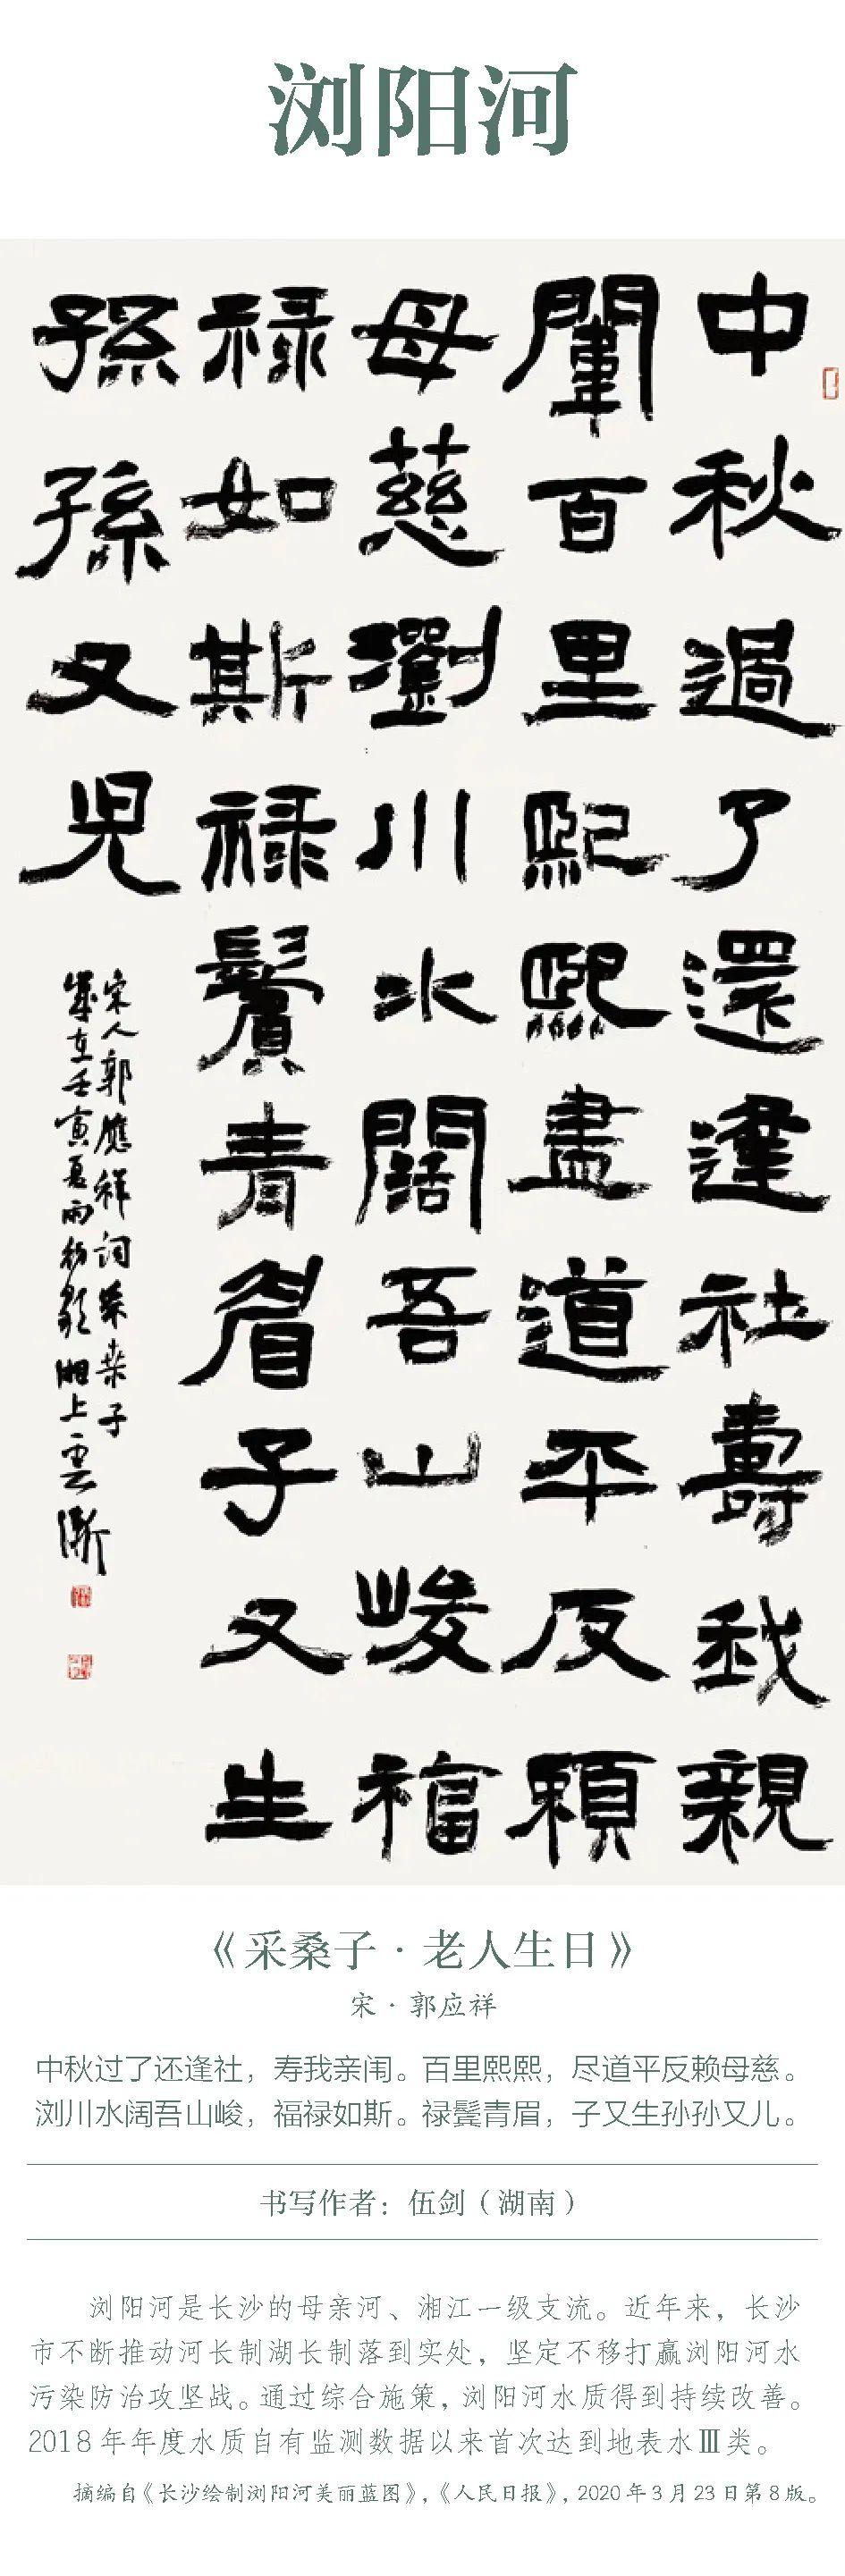 浏阳河
中秋過了還逢社壽我親
闈百里熙熙盡道平反賴
母慈瀏川水闊吾山峻福
祿如斯禄鬢青眉子又生
孫孫又児
宋人郭應祥詞采桑子
歲在壬寅夏雨
湘上雲
《采桑子·老人生日》
宋·郭应祥
中秋过了还逢社，寿我亲闱。百里熙熙，尽道平反赖母慈。
浏川水阔吾山峻，福禄如斯。禄鬓青眉，子又生孙孙又儿。
书写作者：伍剑（湖南）
浏阳河是长沙的母亲河、湘江一级支流。近年来，长沙
市不断推动河长制湖长制落到实处，坚定不移打赢浏阳河水
污染防治攻坚战。通过综合施策，浏阳河水质得到持续改善。
2018年年度水质自有监测数据以来首次达到地表水Ⅲ类。
摘编自《长沙绘制浏阳河美丽蓝图》，《人民日报》，2020年3月23日第8版。